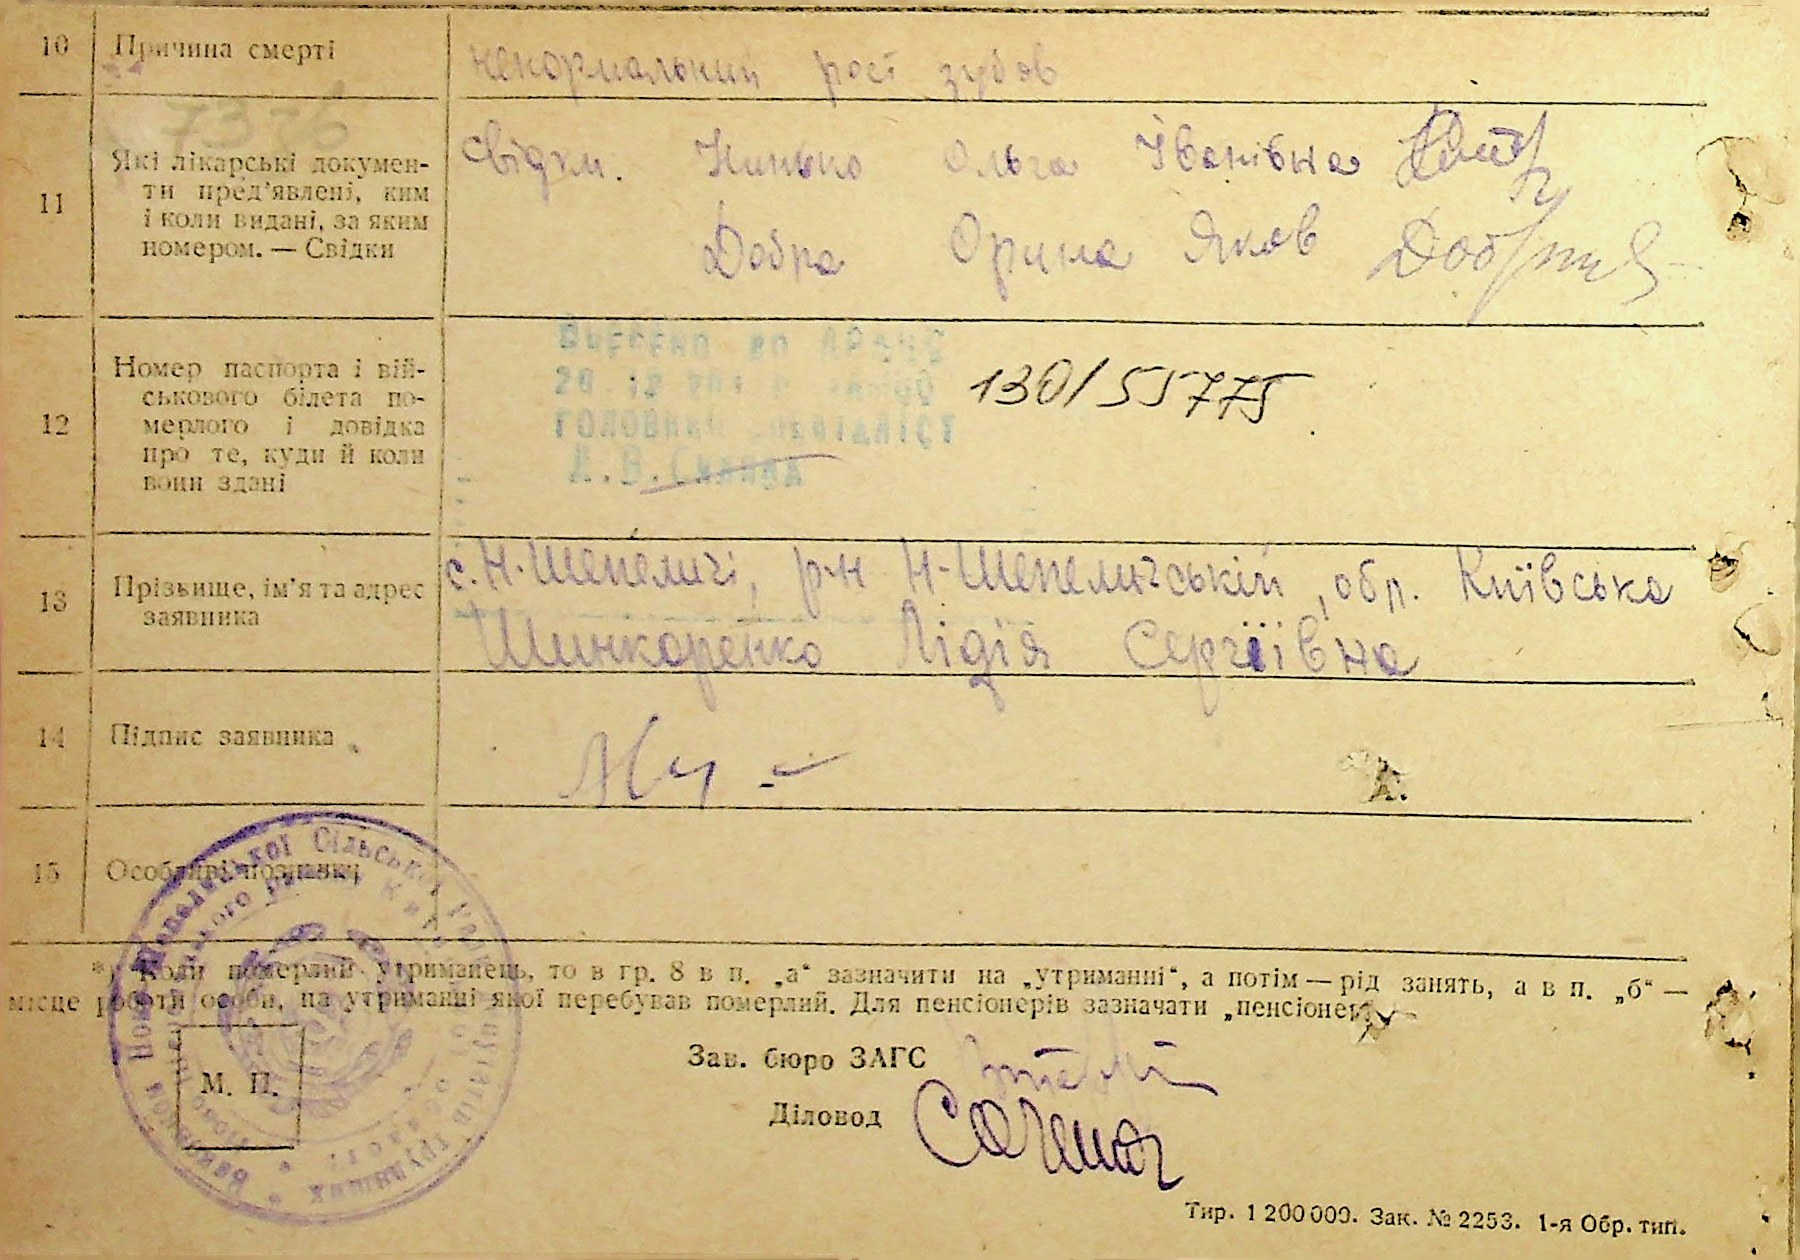 10 Причина смерті ненормальний рост зубов
73-б
11 Які лікарські докумен-
ти пред'явлені, ким
і коли видані, за яким
номером. — Свідки
свідки. Кинько Ольга Іванівна
Добра Орина Яков
12 Номер паспорта і вій-
ськового білета по-
мерлого і довідка
про те, куди й коли
вони здані
Внесено до ДРАЦС
ГОЛОВНИЙ СПЕЦІАЛІСТ
130/55775
13 Прізвище, ім'я та адрес
заявника
с. Н-Шепеличі, р-н Н-Шепелычський, обл. Київська
Шинкаренко Лідія Сергіївна
14 Підпис заявника
15 Особливі познавки
*) Коли померлий утриманець, то в гр. 8 в п. „а“ зазначити на „утриманні“, а потім — рід занять, а в п. „б“ —
місце роботи особи, на утриманні якої перебував померлий. Для пенсіонерів зазначати „пенсіонер“
М. П.
Зав. бюро ЗАГС
Діловод
Тир. 1 200 000. Зак. № 2253. 1-я Обр. тип.